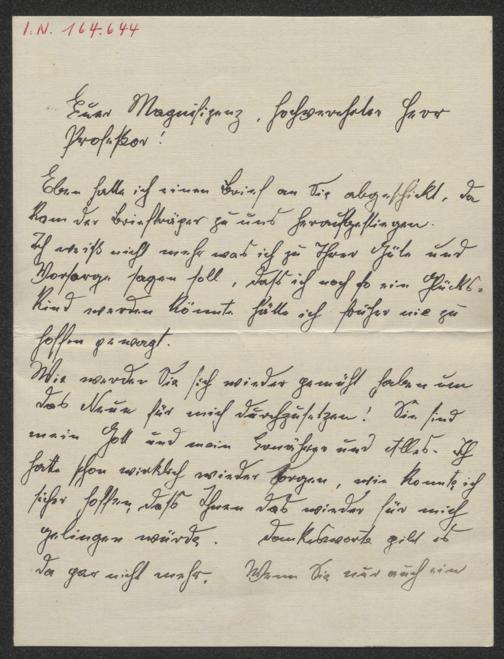 I.N. 164.644
Euer Magnifizenz, hochverehrter Herr
Professor!
Eben hatte ich einen Brief an Sie abgeschickt, da
kam der Briefträger zu uns heraufgestiegen.
Ich weiß nicht mehr was ich zu Ihrer Güte und
Vorsorge sagen soll, dass ich noch so ein Glücks-
kind werden könnte hätte ich früher nie zu
hoffen gewagt.
Wie werden Sie sich wieder gemüht haben um
das Neue für mich durchzusetzen! Sie sind
mein Gott und mein Ernährer und Alles. Ich
hatte schon wirklich wieder Sorgen, wie konnte ich
sicher hoffen, dass Ihnen das wieder für mich
gelingen würde. Dankesworte gibt es
da gar nicht mehr. Wenn Sie nur auch ein